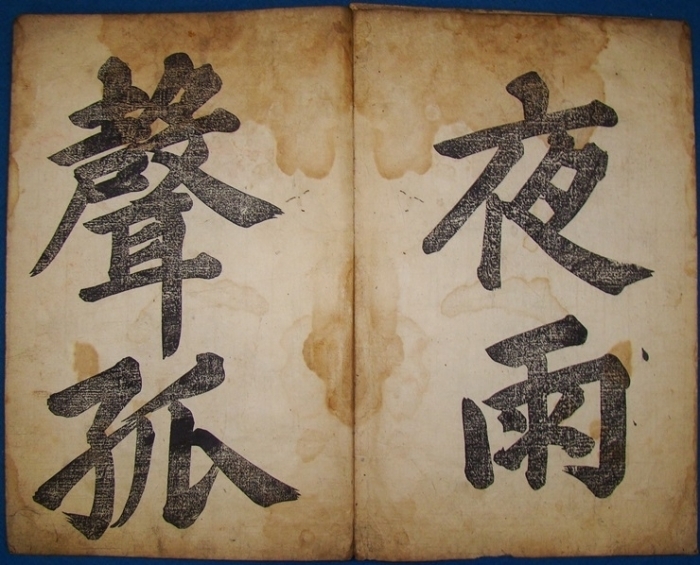 夜雨
聲孤